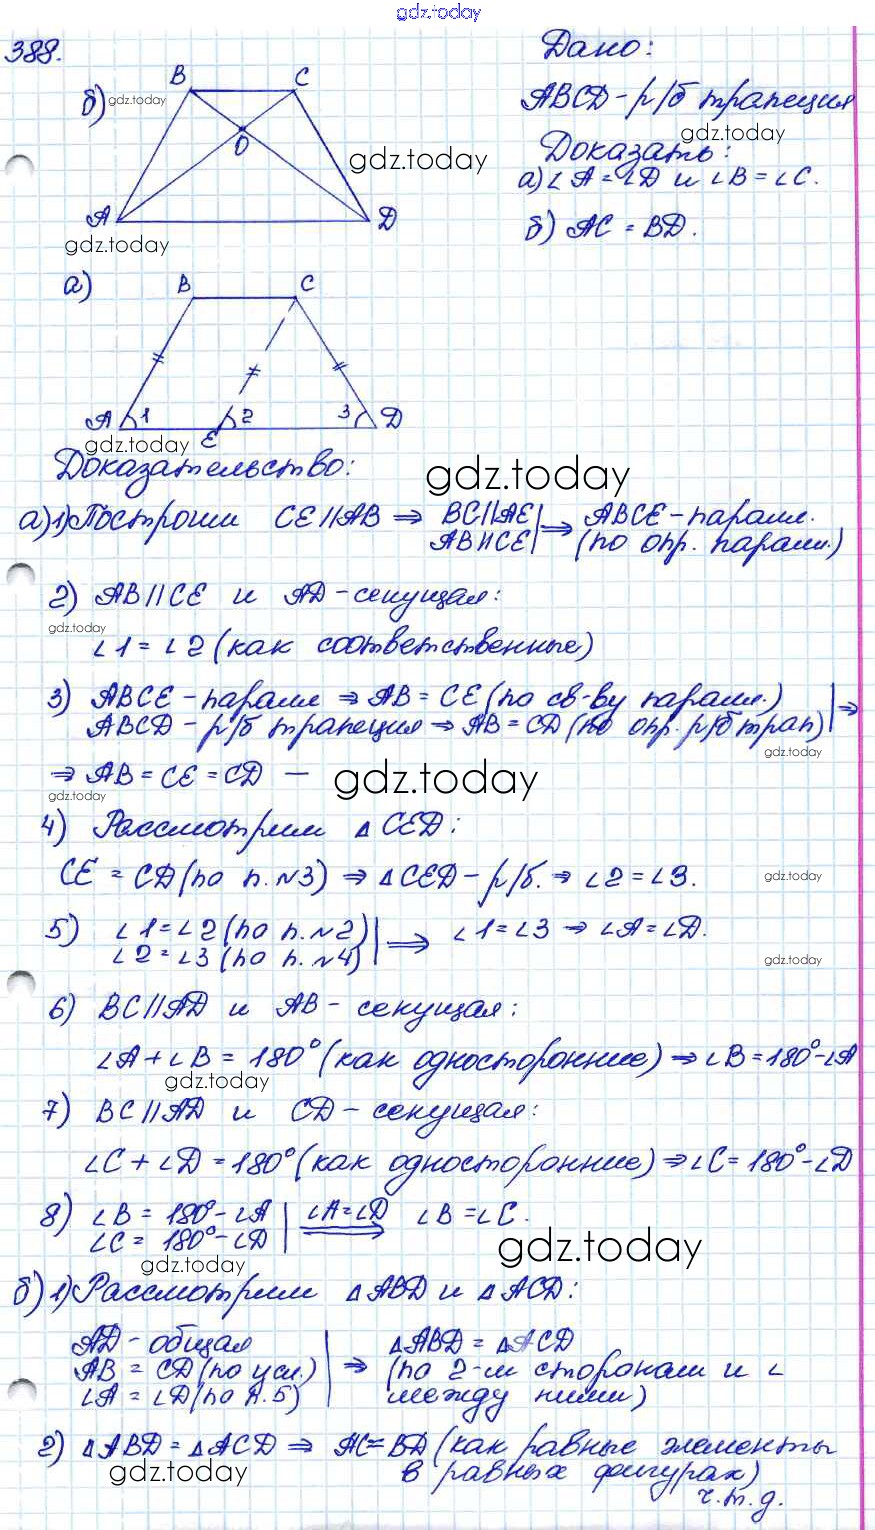 gdz.today
388.
Дано:
б) gdz.today
B C
O
A D
ABCD - р/б трапеция
gdz.today
Доказать:
gdz.today
а) ∠A = ∠D и ∠B = ∠C.
б) AC = BD.
gdz.today
а)
B C
A 1 E 2 3 D
gdz.today
Доказательство:
gdz.today
а) 1) Построим CE || AB ⇒ BC || AE | ⇒ ABCE - паралл.
AB || CE | (по опр. паралл.)
2) AB || CE и AD - секущая:
gdz.today
∠1 = ∠2 (как соответственные)
3) ABCE - паралл ⇒ AB = CE (по св-ву паралл.) | ⇒
ABCD - р/б трапеция ⇒ AB = CD (по опр. р/б трап)
gdz.today
⇒ AB = CE = CD —
gdz.today
gdz.today
4) Рассмотрим △ CED:
CE = CD (по п. №3) ⇒ △ CED - р/б. ⇒ ∠2 = ∠3.
gdz.today
5) ∠1 = ∠2 (по п. №2) | ⇒ ∠1 = ∠3 ⇒ ∠A = ∠D.
∠2 = ∠3 (по п. №4)
gdz.today
6) BC || AD и AB - секущая:
∠A + ∠B = 180° (как односторонние) ⇒ ∠B = 180° - ∠A
gdz.today
7) BC || AD и CD - секущая:
∠C + ∠D = 180° (как односторонние) ⇒ ∠C = 180° - ∠D
8) ∠B = 180° - ∠A | ∠A = ∠D ⇒ ∠B = ∠C.
∠C = 180° - ∠D
gdz.today
gdz.today
б) 1) Рассмотрим △ ABD и △ ACD:
AD - общая | △ ABD = △ ACD
AB = CD (по усл.) | ⇒ (по 2-м сторонам и ∠
∠A = ∠D (по п. 5) | между ними)
2) △ ABD = △ ACD ⇒ AC = BD (как равные элементы
gdz.today
в равных фигурах)
ч.т.д.